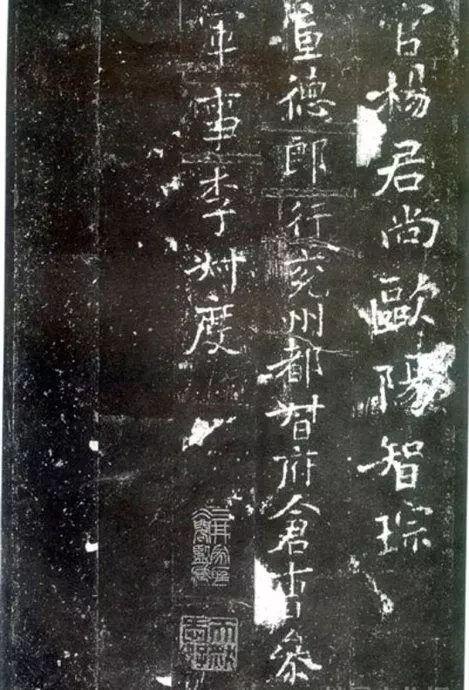 官楊君尚歐陽智琮
宣德郎行兗州都督府倉曹叅
軍事李叔度